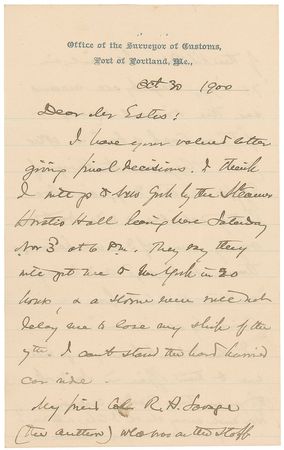 Office of the Surveyor of Customs,
Port of Portland, Me.,
Oct 30 1900
Dear Mr Estes:
I have your valued letter
giving final decisions. I think
I will go to New York by the Steamer
Horatio Hall leaving here Saturday
Nov 3d at 6 P.M. They say they
will get me to New York in 20
hours, & a storm even will not
delay me to lose my ship of the
7th. I can't stand the hard hurried
car ride.
My friend Col R. H. Savage
(the author) who was on the staff